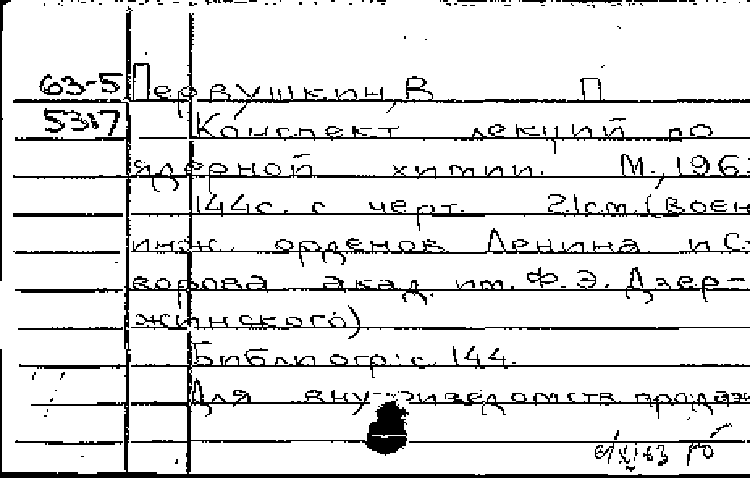 63-5 Первушкин, В П
5317 Конспект лекций по
ядерной химии. М., 196
144с. с черт. 21см. (Воен
инж. орденов Ленина и С
ворова акад. им. Ф.Э. Дзер-
жинского)
Библиогр: с. 144.
Для внутриведомств. продаж